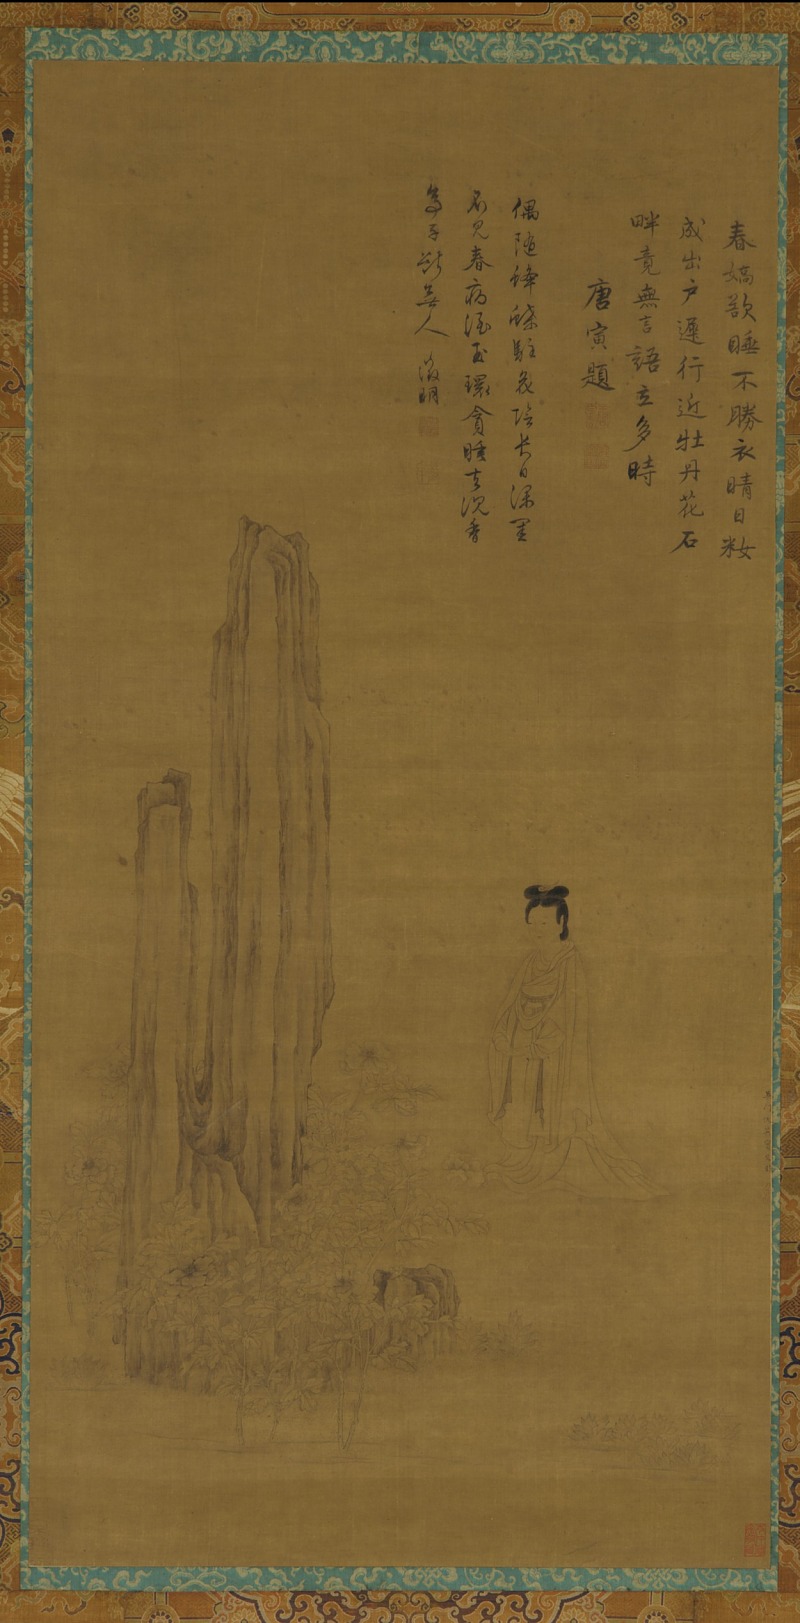 春嬌欲睡不勝衣晴日粧
成出戶遲行近牡丹花石
畔竟無言語立多時
唐寅題
偶隨蜂蝶駐花陰長日深閨
不見春病酒玉環貪睡去沉香
亭子斷無人 徵明